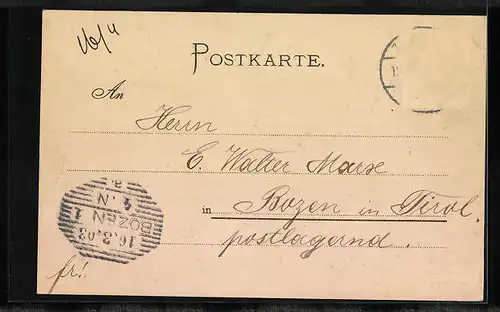 16/4
POSTKARTE.
An
Herrn
E. Walter Marx
in Bozen in Tirol.
postlagernd.
BOZEN 1
16.3.03
N
fr!